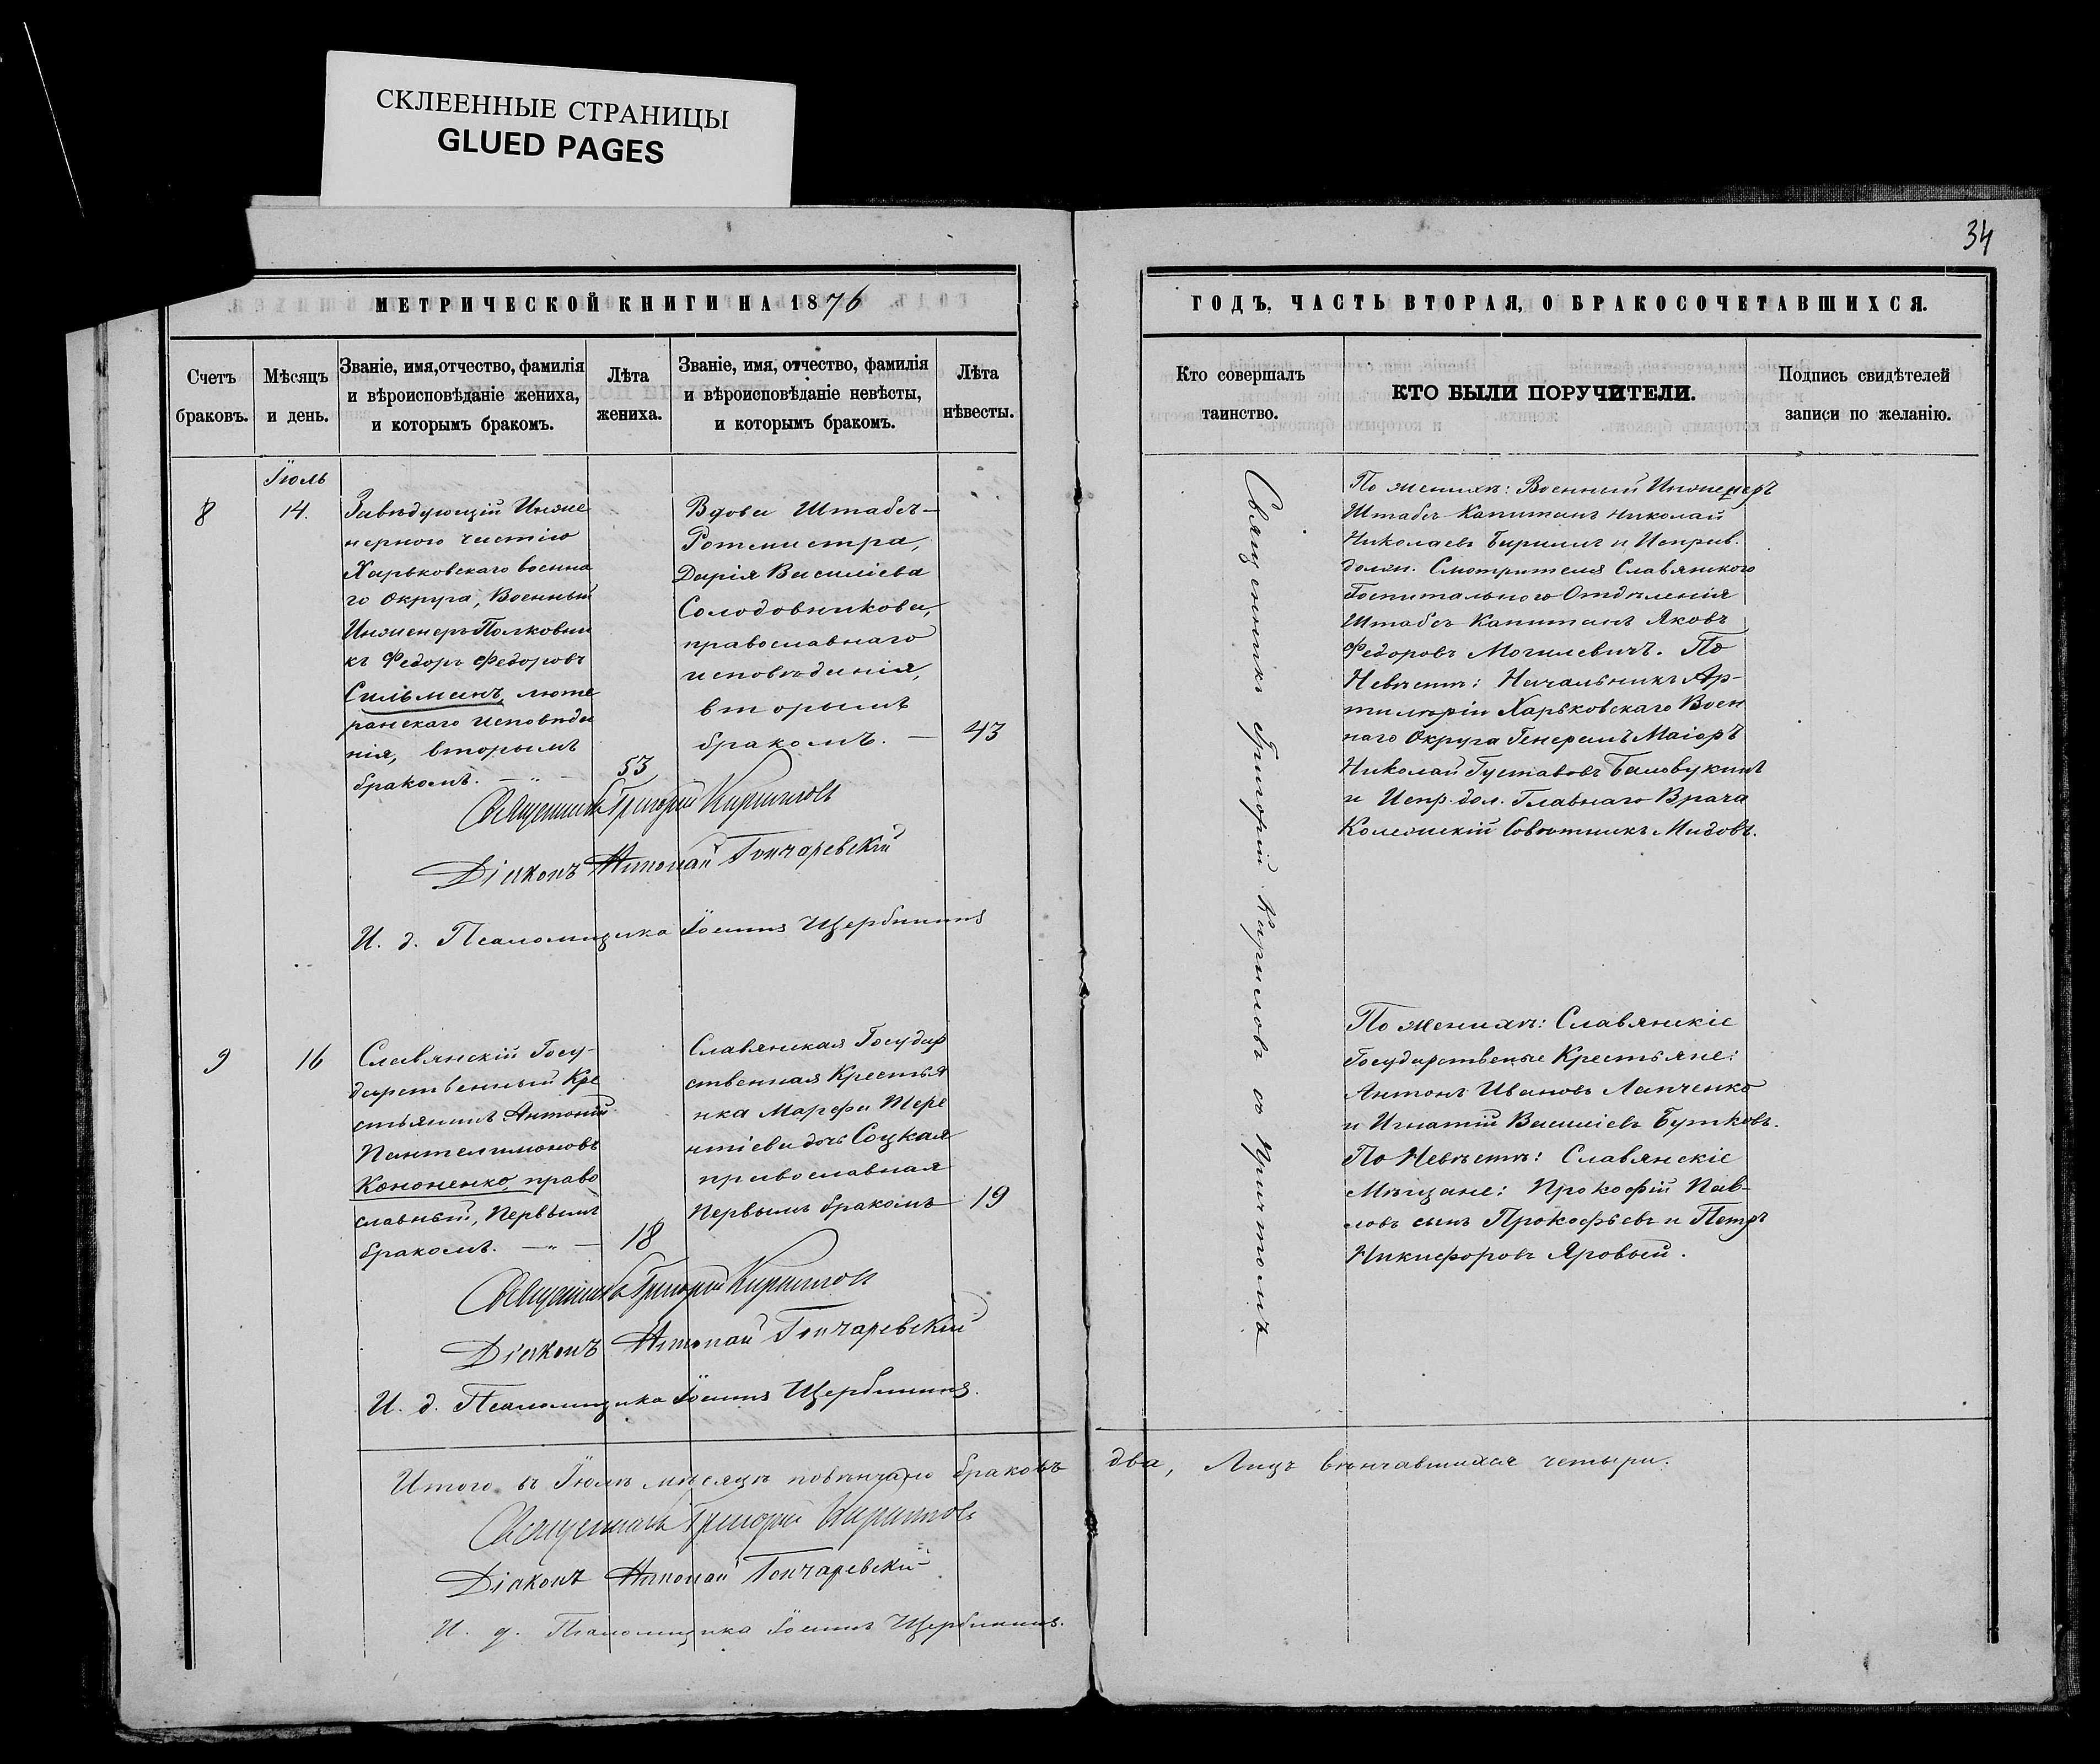 СКЛЕЕННЫЕ СТРАНИЦЫ
GLUED PAGES
34
МЕТРИЧЕСКОЙ КНИГИ НА 1876
Счетъ браковъ.
Мѣсяцъ и день.
Званіе, имя, отчество, фамилія
и вѣроисповѣданіе жениха,
и которымъ бракомъ.
Лѣта жениха.
Званіе, имя, отчество, фамилія
и вѣроисповѣданіе невѣсты,
и которымъ бракомъ.
Лѣта нѣвесты.
Іюль
8
14.
Завѣдующій Инже
нерною частію
Харьковскаго военна
го Округа, Военный
Инженеръ Полковни
къ Федоръ Федоровъ
Сильманъ, люте
ранскаго исповѣда
нія, вторымъ
бракомъ. — „ —
53
Вдова Штабсъ-
Ротмистра,
Дарія Василіева
Солодовникова,
православнаго
исповѣданія,
вторымъ
бракомъ. —
43
Священникъ Григорій Кириловъ
Діаконъ Николай Гончаревскій
И. д. Псаломщика Іоаннъ Щербининъ
9
16
Славянскій Госу-
дарственный Кре
стьянинъ Антоній
Пантелимоновъ
Кононенко, право
славный, первымъ
бракомъ. — „ —
18
Славянская Государ
ственная Крестья
нка Марфа Тере
нтіева дочь Соцкая
православная
первымъ бракомъ
19
Священникъ Григорій Кириловъ
Діаконъ Николай Гончаревскій
И. д. Псаломщика Іоаннъ Щербининъ.
Итого въ Іюлѣ мѣсяцѣ повѣнчано браковъ два, Лицъ вѣнчавшихся четыри.
Священникъ Григорій Кириловъ
Діаконъ Николай Гончаревскій
И. д. Псаломщика Іоаннъ Щербининъ.
ГОДЪ, ЧАСТЬ ВТОРАЯ, О БРАКОСОЧЕТАВШИХСЯ.
Кто совершалъ
таинство.
КТО БЫЛИ ПОРУЧИТЕЛИ.
Подпись свидѣтелей
записи по желанію.
Священникъ Григорій Кириловъ съ Причтомъ
По женихѣ: Военный Инженеръ
Штабсъ Капитанъ Николай
Николаевъ и Исправ.
долж. Смотрителя Славянского
Госпитального Отдѣленія
Штабсъ Капитанъ Яковъ
Федоровъ Могилевичъ. По
Невѣстѣ: Начальникъ Ар-
тилѣріи Харьковскаго Воен
наго Округа Генералъ Маіоръ
Николай Густавовъ
и Испр. дол. Главнаго Врача
Колежскій Совѣтникъ Мидовъ.
По женихѣ: Славянскіе
Государственые Крестьяне:
Антонъ Ивановъ Лапченко
и Игнатій Василіевъ Бутковъ.
По Невѣстѣ: Славянскіе
Мѣщане: Прокофій Пав-
ловъ сынъ Прокофьевъ и Петръ
Никифоровъ Яровый.